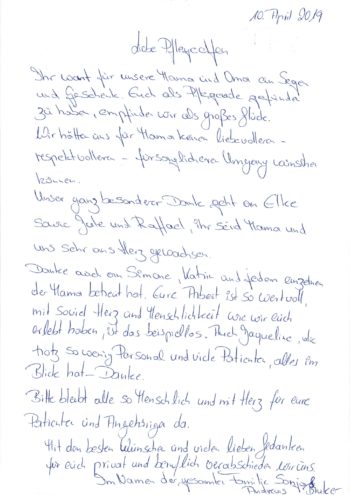 10. April 2019
Liebe Pflegeeltern
Ihr wart für unsere Mama und Oma ein Segen
und Geschenk. Euch als Pflegende gefunden
zu haben, empfinden wir als großes Glück.
Wir hätten uns für Mama keinen liebevolleren -
respektvolleren - fürsorglicheren Umgang wünschen
können.
Unser ganz besonderer Danke, geht an Elke
sowie Jute und Raffael, ihr seid Mama und
uns sehr ans Herz gewachsen.
Danke auch an Simone, Katrin und jedem einzelnen
der Mama betreut hat. Eure Arbeit ist so wertvoll,
mit soviel Herz und Menschlichkeit wie wir euch
erlebt haben, ist das beispiellos. Auch Jaqueline, die
trotz so wenig Personal und viele Patienten, alles im
Blick hat - Danke.
Bitte bleibt alle so Menschlich und mit Herz für eure
Patienten und Angehörige da.
Mit den besten Wünschen und vielen lieben Gedanken
für euch privat und beruflich verabschieden wir uns
Im Namen der gesamten Familie Sonja
Andreas